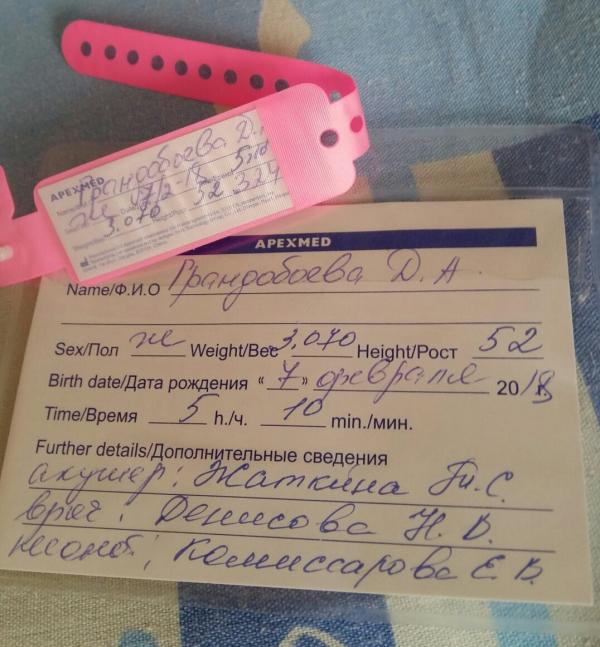 APEXMED
Грандобоева Д.
Name
же 07/2-18 5:10
3.070 52 324
APEXMED
Name/Ф.И.О Грандобоева Д. А.
Sex/Пол же Weight/Вес 3,070 Height/Рост 52
Birth date/Дата рождения « 7 » февраля 2018 г.
Time/Время 5 h./ч. 10 min./мин.
Further details/Дополнительные сведения
акушер: Жаткина Т. С.
врач: Денисова Н. В.
Комиссарова Е. В.